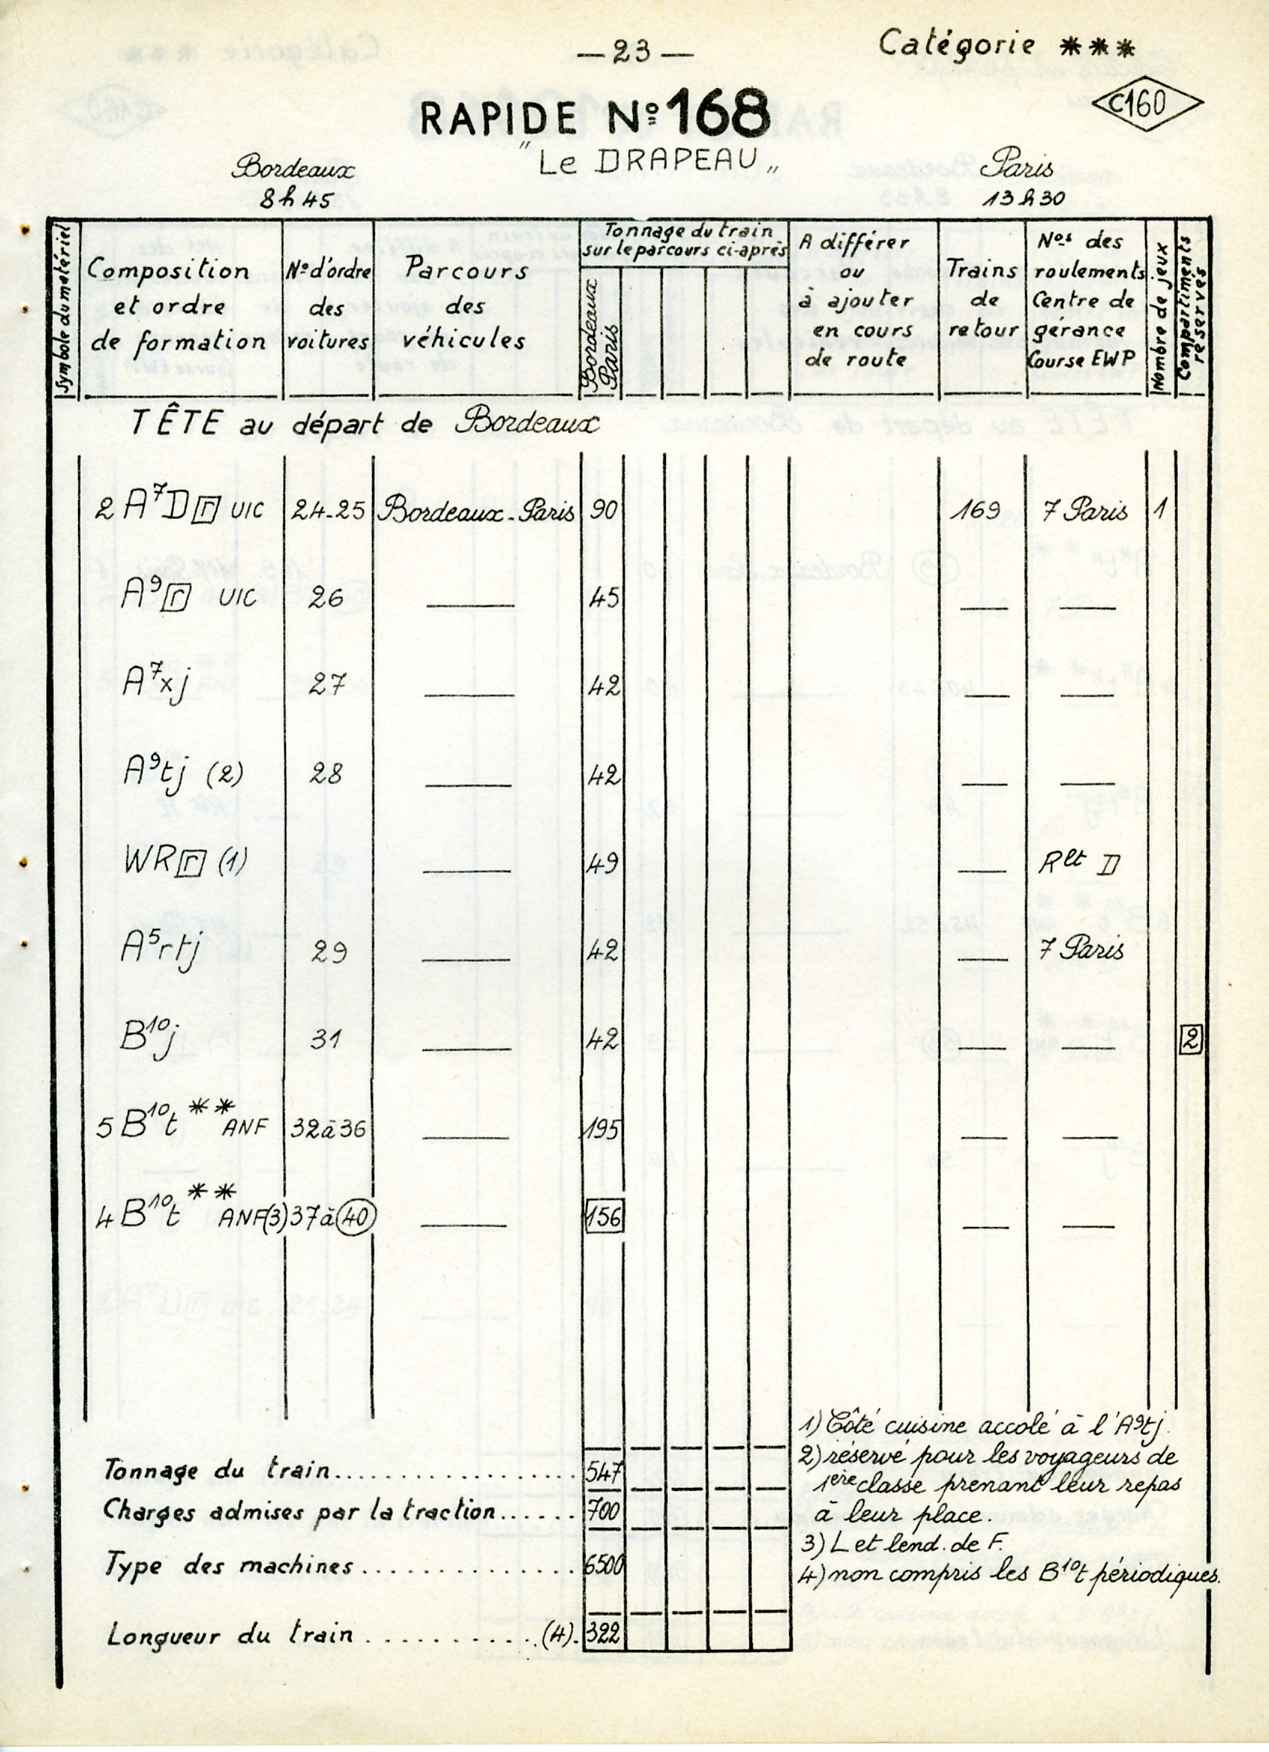 —23—
Catégorie ***
RAPIDE Nº 168
C160
"Le DRAPEAU"
Bordeaux
8h45
Paris
13h30
Symbole du matériel
Composition
et ordre
de formation
Nº d'ordre
des
voitures
Parcours
des
véhicules
Tonnage du train
sur le parcours ci-après
Bordeaux
Paris
A différer
ou
à ajouter
en cours
de route
Trains
de
retour
Nos des
roulements
Centre de
gérance
Course EWP
Nombre de jeux
Compartiments
réservés
TÊTE au départ de Bordeaux
2 A⁷D r UIC 24-25 Bordeaux-Paris 90 169 7 Paris 1
A⁹ r UIC 26 —— 45 —— ——
A⁷xj 27 —— 42 —— ——
A⁹tj (2) 28 —— 42 —— ——
WR r (1) —— 49 —— Rlt D
A⁵rtj 29 —— 42 —— 7 Paris
B¹⁰j 31 —— 42 —— —— 2
5 B¹⁰t ** ANF 32 à 36 —— 195 —— ——
4 B¹⁰t ** ANF(3) 37 à 40 —— 156 —— ——
1) Côté cuisine accolé à l'A⁹tj.
2) réservé pour les voyageurs de
1ère classe prenant leur repas
à leur place.
3) L et lend. de F.
4) non compris les B¹⁰t périodiques.
Tonnage du train.................. 547
Charges admises par la traction...... 700
Type des machines.............. 6500
Longueur du train ..........(4). 322